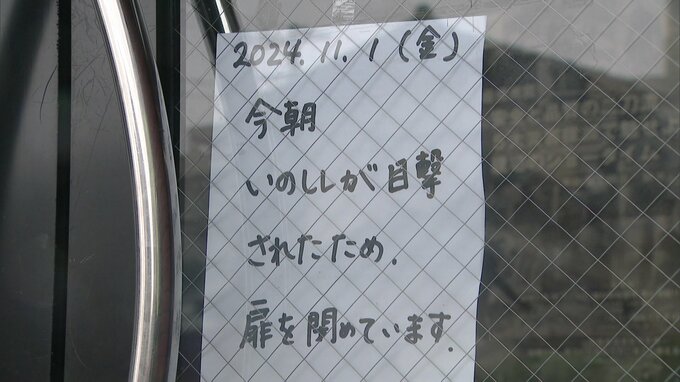 2024.11.1(金)
今朝
いのししが目撃
されたため.
扉を閉めています.